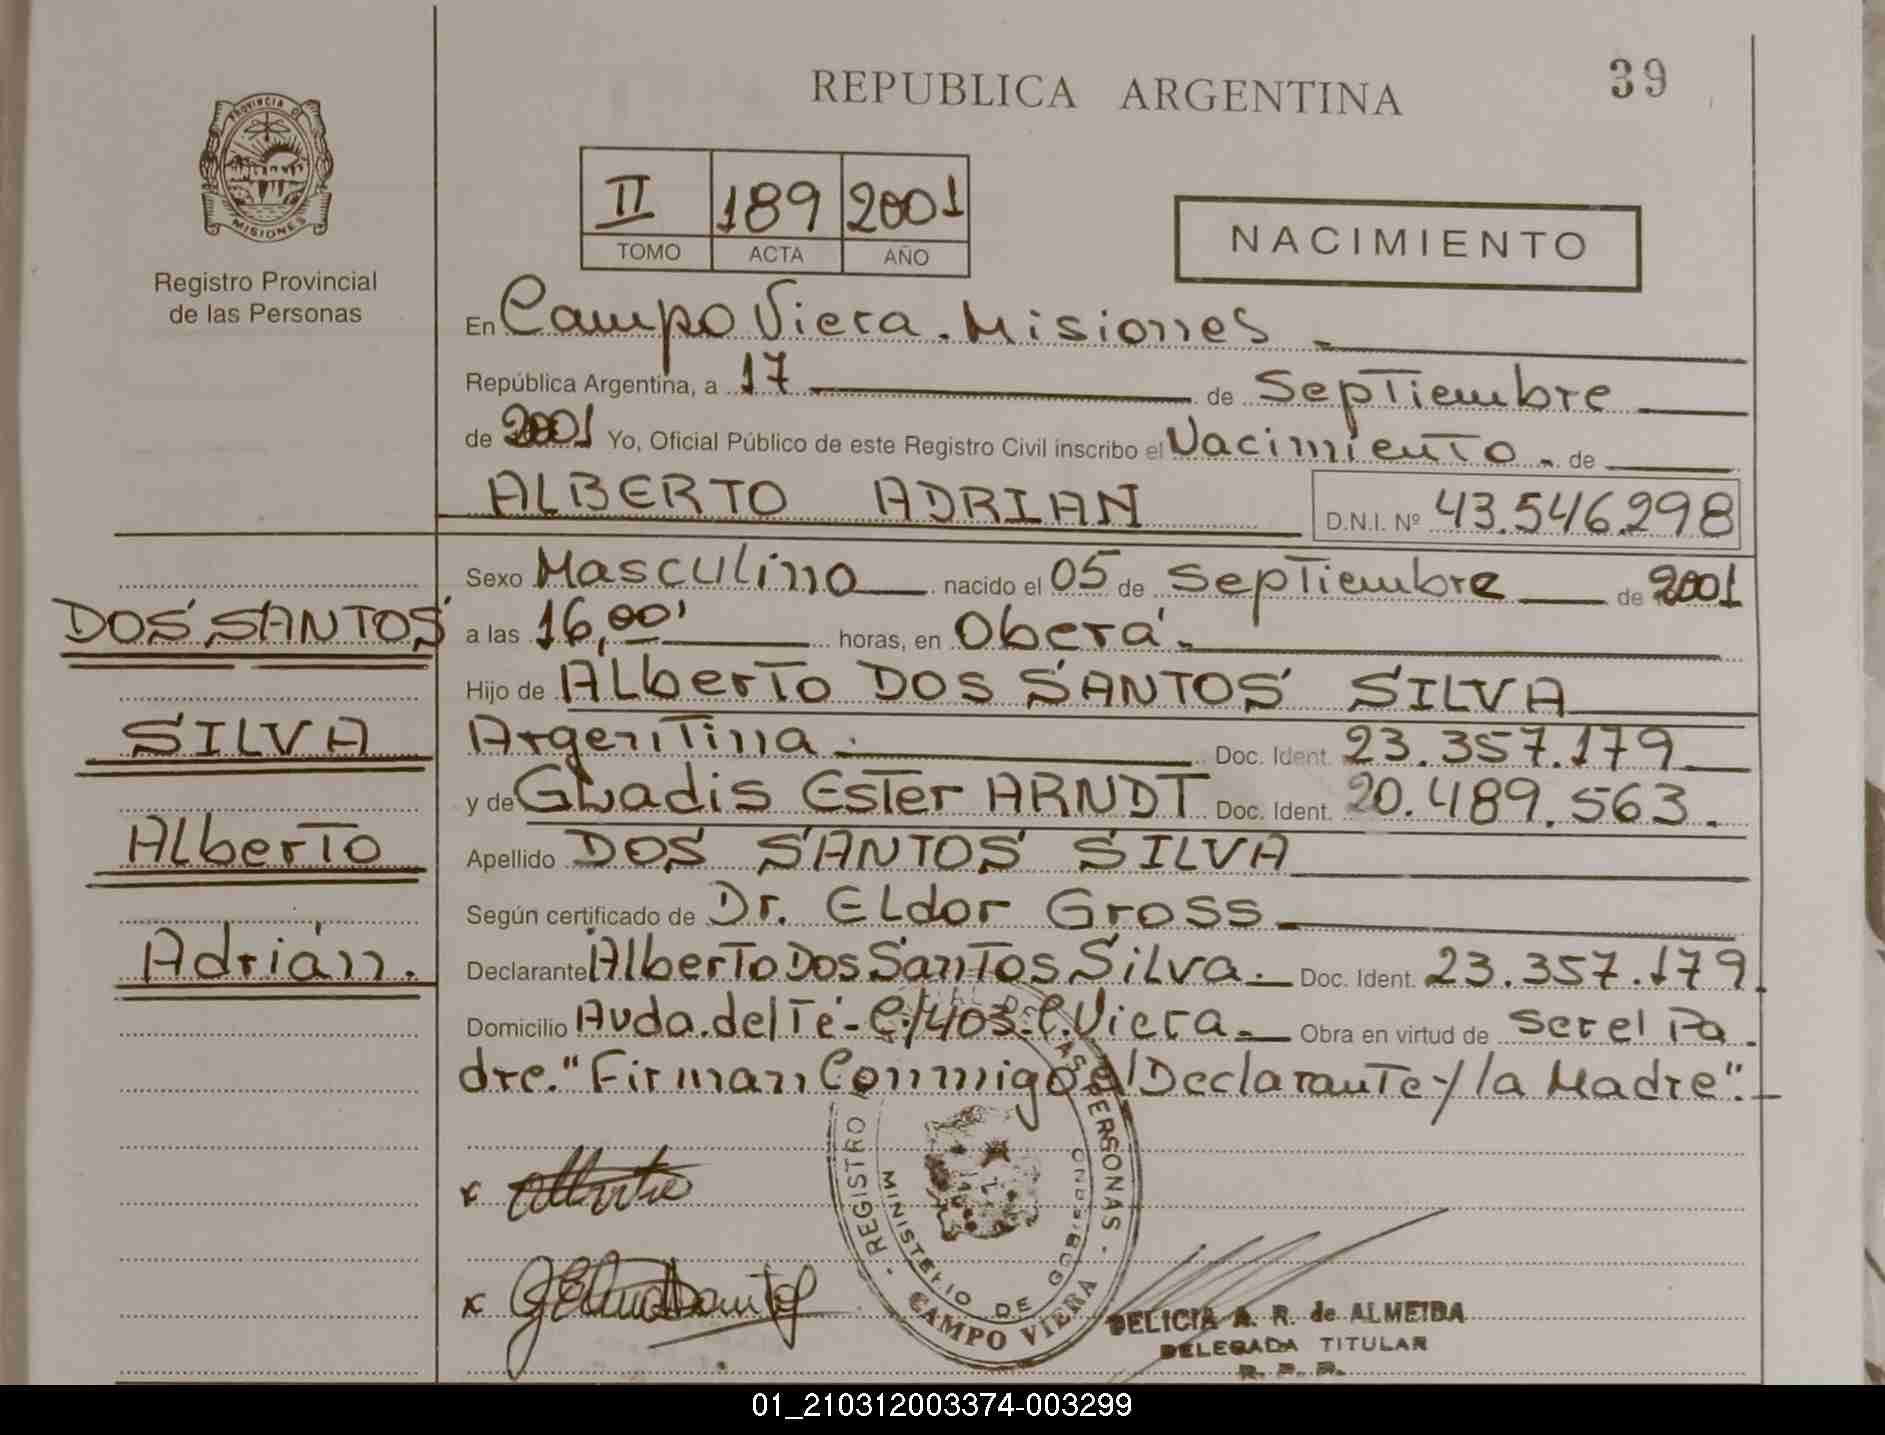 REPUBLICA ARGENTINA
39
PROVINCIA DE
MISIONES
Registro Provincial
de las Personas
II 189 2001
TOMO ACTA AÑO
NACIMIENTO
En Campo Viera. Misiones
República Argentina, a 17 de Septiembre
de 2001 Yo, Oficial Público de este Registro Civil inscribo el Nacimiento. de
ALBERTO ADRIAN D.N.I. Nº 43.546.298
Sexo Masculino nacido el 05 de Septiembre de 2001
a las 16,00' horas, en Oberá.
Hijo de Alberto DOS SANTOS SILVA
Argentina. Doc. Ident. 23.357.179
y de Gladis Ester ARNDT Doc. Ident. 20.489.563.
Apellido DOS SANTOS SILVA
Según certificado de Dr. Eldor Gross
Declarante Alberto Dos Santos Silva. Doc. Ident. 23.357.179
Domicilio Avda. del Té - C./403 - C. Viera. Obra en virtud de ser el Pa
dre. "Firman Conmigo el Declarante y la Madre".
DOS SANTOS
SILVA
Alberto
Adrián.
x
x
REGISTRO DE LAS PERSONAS
MINISTERIO DE GOBIERNO
CAMPO VIERA
DELICIA A. R. de ALMEIDA
DELEGADA TITULAR
R. P. P.
01_210312003374-003299